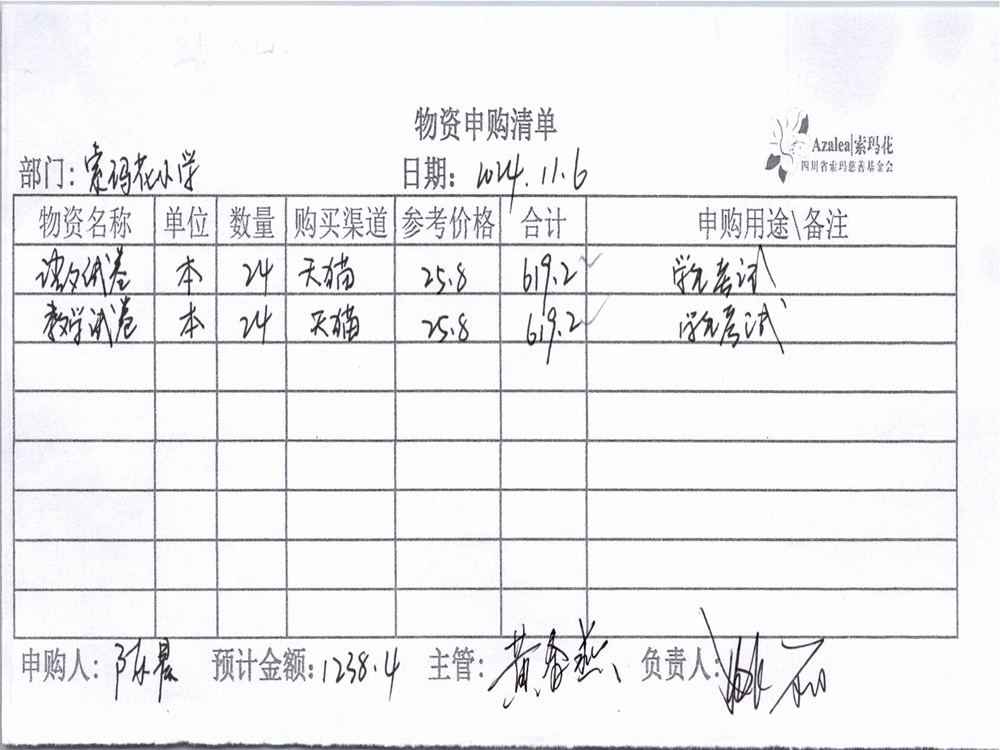 物资申购清单
Azalea|索玛花
四川省索玛慈善基金会
部门：索玛花小学 日期：2024.11.6
物资名称 单位 数量 购买渠道 参考价格 合计 申购用途\备注
语文试卷 本 24 天猫 25.8 619.2 学生考试
数学试卷 本 24 天猫 25.8 619.2 学生考试
申购人：陈晨 预计金额：1238.4 主管：黄春燕 负责人：